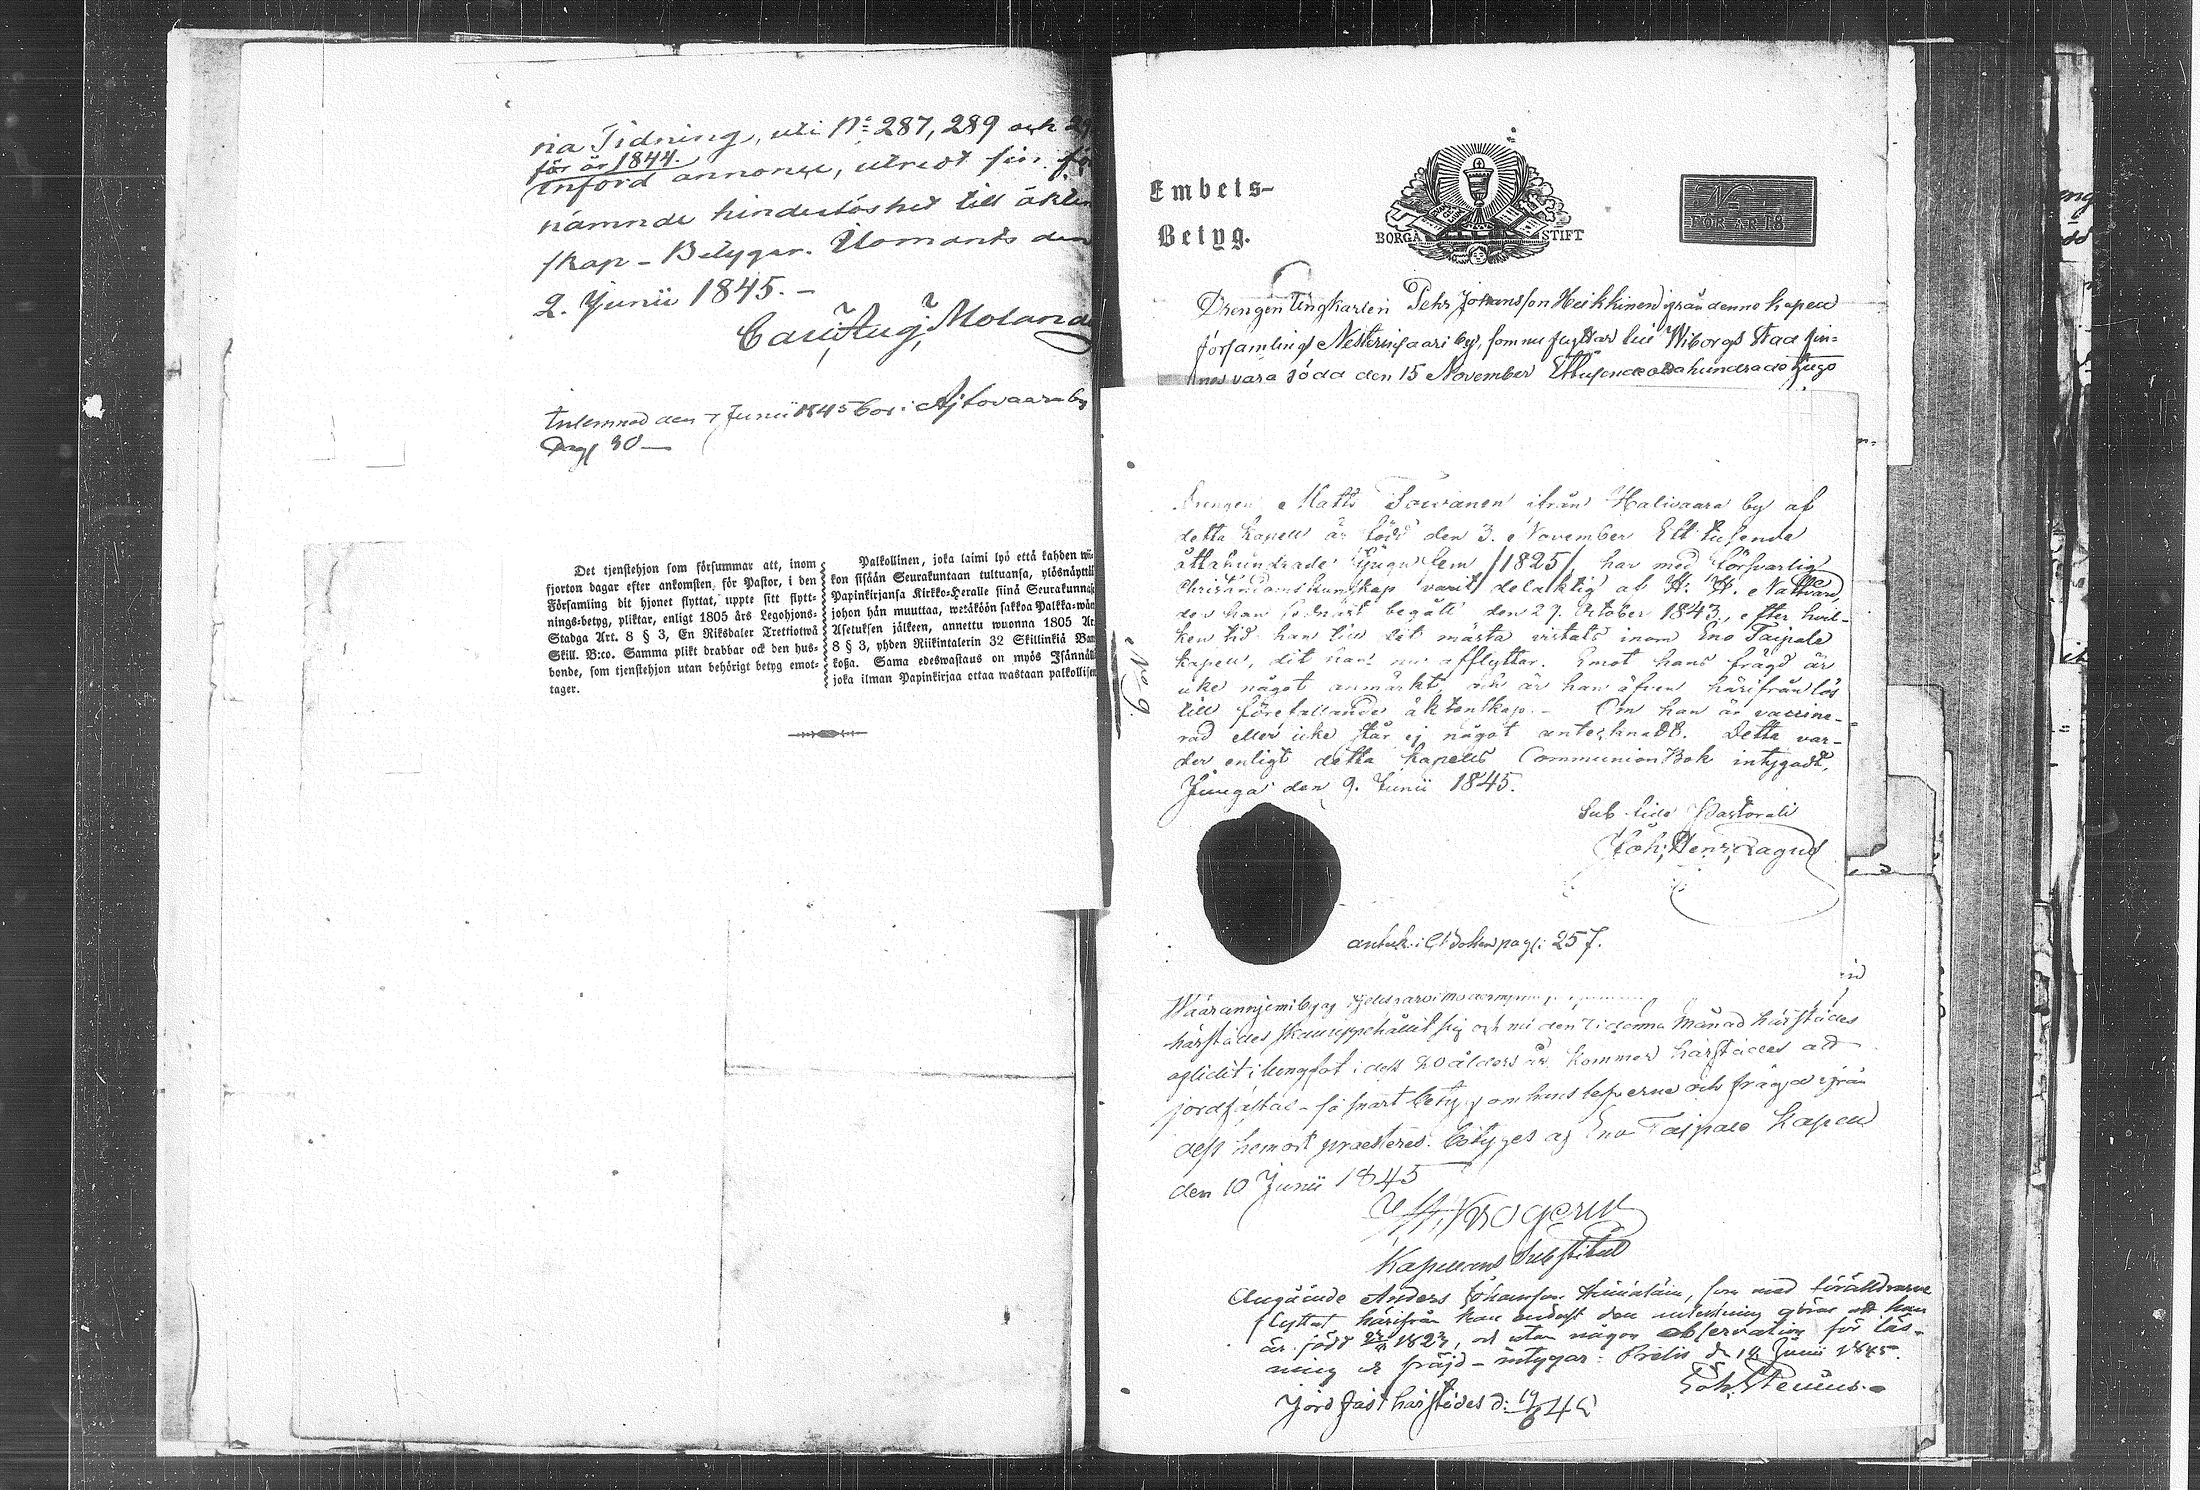 ria Tidning, uti No 287, 289 och
för år 1844.
införd annonce, utredt sin
nämnde hinderlöshet till
skap - Betygar. Ilomants den
2. Junii 1845. -
Carl Aug. Moland
Inlemnad den 7 Junii 1845 bor i Ajtovaara by
Pag 30 -
Det tjenstehjon som försummar att, inom
fjorton dagar efter ankomsten, för Pastor, i den
Församling dit hjonet flyttat, uppte sitt flytt-
nings-betyg, pliktar, enligt 1805 års Legohjons-
Stadga Art. 8 § 3, En Riksdaler Trettiotwå
Skill. B:co. Samma plikt drabbar ock den hus-
bonde, som tjenstehjon utan behörigt betyg emot-
tager.
Palkollinen, joka laimi lyö että kahden wii-
kon sisään Seurakuntaan tultuansa, ylösnäyttä
Papinkirjansa Kirkko-Heralle siinä Seurakunnas
johon hän muuttaa, wetäköön sakkoa Palkka-wäen
Asetuksen jälkeen, annettu wuonna 1805 Ar
8 § 3, yhden Riikintalerin 32 Skillinkiä Ban
kosa. Sama edeswastaus on myös Isännällä
joka ilman Papinkirjaa ottaa wastaan palkollisen
Embets-
Betyg.
BORGÅ STIFT
No
FÖR ÅR 18
Drengen Ungkarlen Pehr Johansson Heikkinen ifrån denne kapell
församlings Nesterinsaari by, som nu flyttar till Wiborgs Stad fin-
nes vara född den 15 November Ettusende ottahundrade tjugo
Drengen Matts Touranen ifrån Halivaara by af
detta kapell är född den 3. November Ett tusende
åttahundrade tjugu fem /1825/, har med försvarlig
Christendomskunskap varit delaktig af H. H. Nattvard,
den han sednast begått den 27. October 1843, efter hvil-
ken tid han till det mästa vistats inom Eno Taipale
kapell, dit han nu afflyttar. Emot hans frägd är
icke något anmärkt, och är han äfven härifrån lös
till förefallande äktenskap. - Om han är vaccine-
rad eller icke står ej något antecknadt. Detta var-
der enligt detta kapells Communion Bok intygadt,
Juuga den 9. Junii 1845.
Sub fide Pastorali
Joh. Henr. Lagus
No 9.
anteck. i C. Boken pag: 257.
Wäärannjemi by af
härstädes skall uppehållit sig och nu den 7 i denna Månad härstädes
aflidit i lungsot i dess 20 ålders år kommer härstädes att
jordfästas - så snart betyg om hans lefverne och frägd ifrån
dess hemort praesteres. Betyges af Eno Taipale Kapell
den 10 Junii 1845
Krogerus
Kapellans Substitut
Angående Anders Johansson, som med föräldrarne
flyttat härifrån kan endast den göras att han
är född 1823, och utan någon observation för läs-
ning och fräjd - intygar: Prelis d. 18 Junii 1845.
Joh. Stenius.
Jordfäst härstädes d: